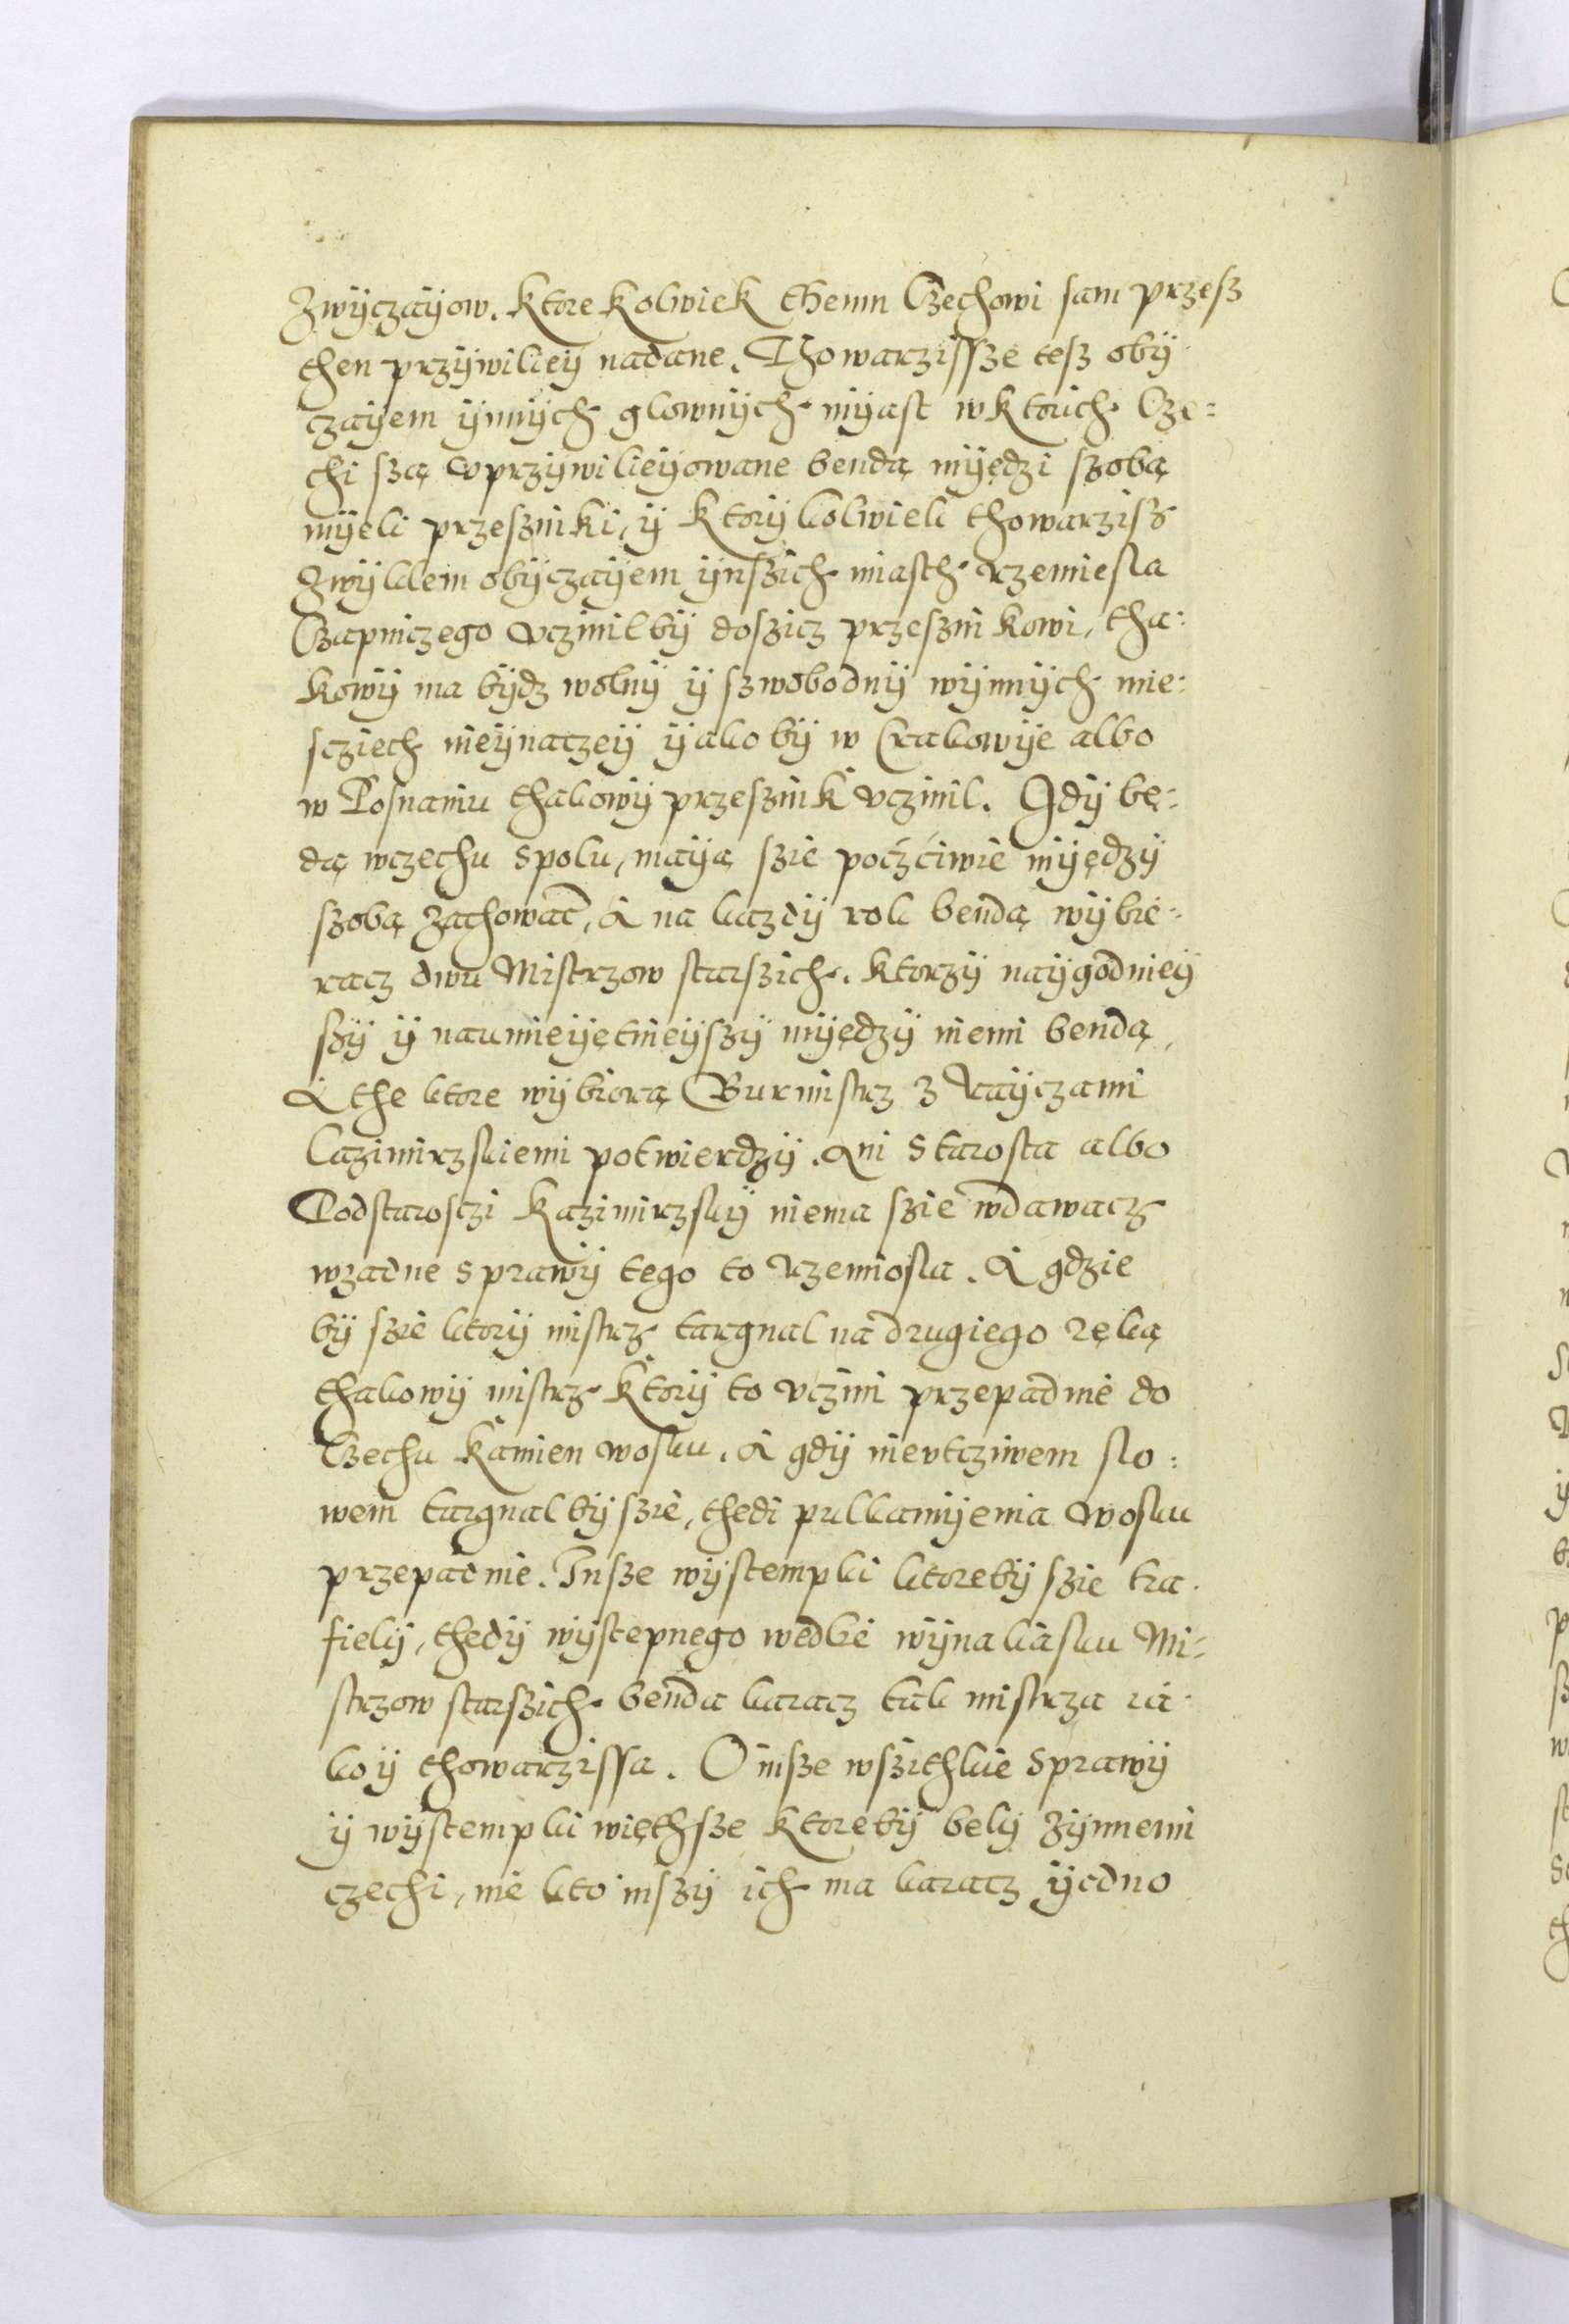 Zwÿczaÿow. Ktore Kolwiek themu Czechowi sam przesz
then przÿwiliey nadane. Thowarzissze tesz obÿ
czaÿem ÿnnÿch glownÿch mÿast w ktorich Cze=
chi szą vprzÿwilieÿowane bendą mÿędzi szobą
mÿeli przeszniki, ÿ Ktorÿkolwiek thowarzisz
Zwÿklem obÿczaÿem ÿnszich miasth rzemiesla
Czapniczego vczinil bÿ doszicz przesznikowi, tha=
kowÿ ma bÿdz wolnÿ ÿ szwobodnÿ wÿnnÿch mie=
scziech nieÿnaczeÿ ÿako bÿ w Crakowÿe albo
w Posnaniu thakowÿ przesznik vczinil. Gdÿ bę=
dą wczechu spolu, maÿą szie poczciwie mÿędzÿ
szobą zachowac, A na kazdÿ rok bendą wÿbie=
racz dwu Mistrzow starszich. Ktorzÿ naÿgodnieÿ
szÿ ÿ naumieÿętnieÿszÿ mÿędzÿ niemi bendą,
A the ktore wÿbiorą Burmistrz z Raÿczami
Cazimirzskiemi potwierdzÿ. Ani Starosta albo
Podstarosczi Kazimirzskÿ niema szie wdawacz
wzadne sprawÿ tego to rzemiosla. A gdzie
bÿ szie ktorÿ mistrz targnal na drugiego ręką
thakowÿ mistrz Ktorÿ to vczini przepadnie do
Czechu Kamien wosku. A gdÿ nievtcziwem slo=
wem targnal bÿ szie, thedi pulkamÿenia wosku
przepadnie. Insze wÿstempki ktorebÿ szie tra=
fielÿ, thedÿ wÿstepnego wedle wÿnalasku Mi=
strzow starszich benda karacz tak mistrza ia=
ko ÿ thowarzissa. O insze wszithkie sprawÿ
ÿ wÿstempki więthsze Ktorebÿ belÿ zÿnnemi
czechi, nie kto inszÿ ich ma karacz ÿedno